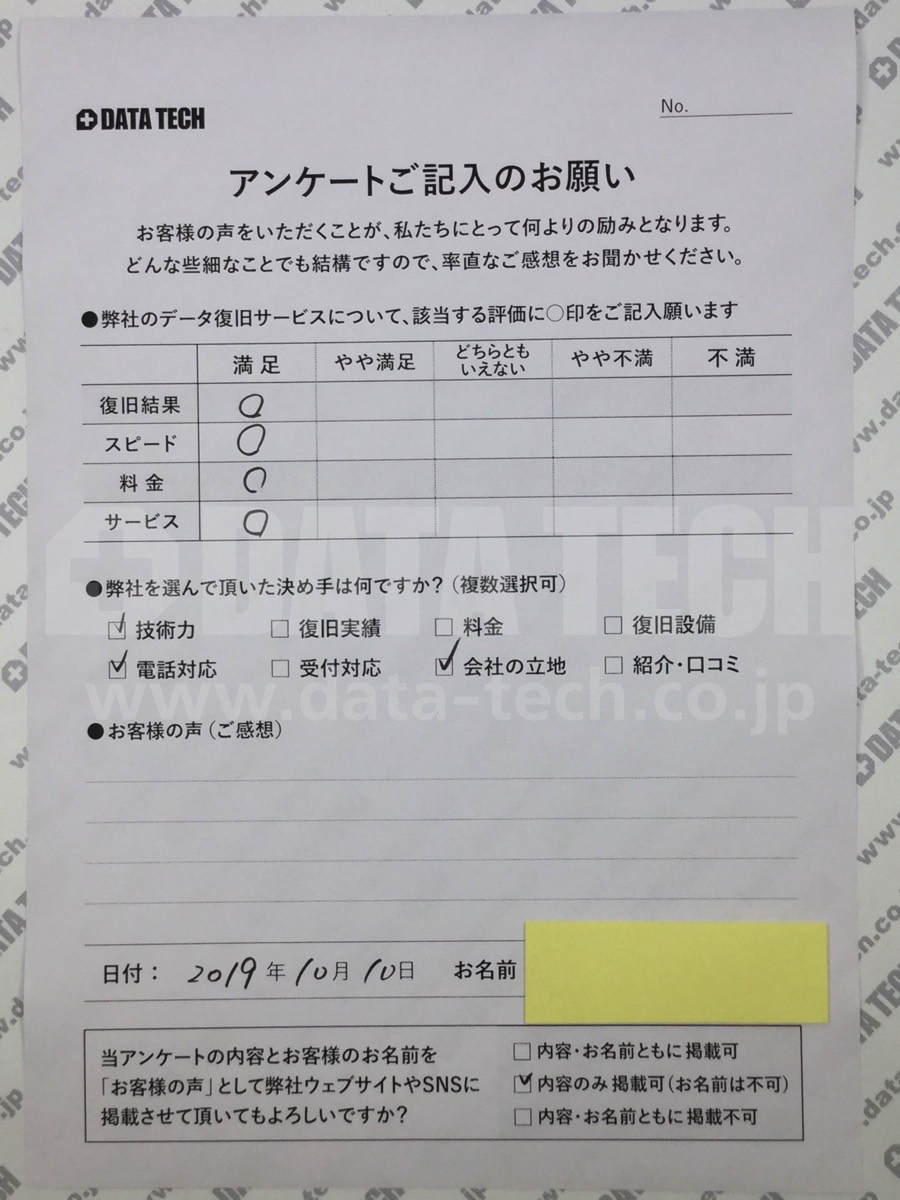 DATA TECH
No.
アンケートご記入のお願い
お客様の声をいただくことが、私たちにとって何よりの励みとなります。
どんな些細なことでも結構ですので、率直なご感想をお聞かせください。
●弊社のデータ復旧サービスについて、該当する評価に○印をご記入願います
満足 やや満足 どちらとも いえない やや不満 不満
復旧結果 ○
スピード ○
料金 ○
サービス ○
DATA TECH
●弊社を選んで頂いた決め手は何ですか？（複数選択可）
☑ 技術力 □ 復旧実績 □ 料金 □ 復旧設備
☑ 電話対応 □ 受付対応 ☑ 会社の立地 □ 紹介・口コミ
www.data-tech.co.jp
●お客様の声（ご感想）
日付： 2019年 10月 10日 お名前
当アンケートの内容とお客様のお名前を
「お客様の声」として弊社ウェブサイトやSNSに
掲載させて頂いてもよろしいですか？
□ 内容・お名前ともに掲載可
☑ 内容のみ掲載可（お名前は不可）
□ 内容・お名前ともに掲載不可